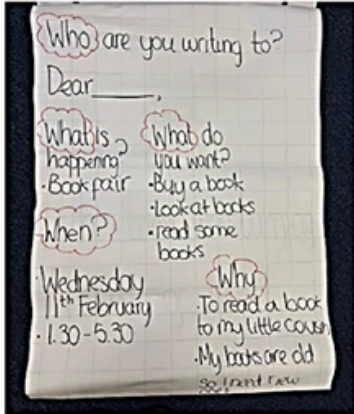 Who are you writing to?
Dear_____,
What is
happening?
• Book fair
When?
• Wednesday
11th February
• 1.30-5.30
What do
you want?
• Buy a book
• Look at books
• read some
books
Why
• To read a book
to my little cousin
• My books are old
so I need new